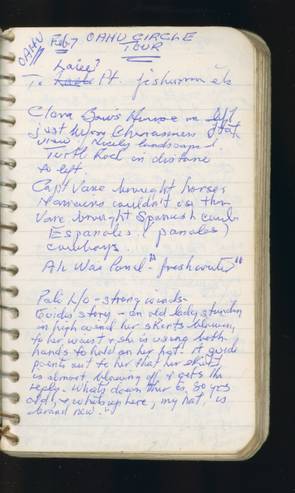 OAHU Feb 7 OAHU CIRCLE
TOUR
Laiee?
To Pt. fishermen etc
Clara Bow's House on left
just before
view. Nicely landscaped
Turtle Rock in distance
to left
Capt Vanc brought horses
couldn't use them
Vanc brought Spanish cowb
Españoles (paniolos)
cowboys.
Ala Wai Canal - "fresh water"
Pali L/O - strong winds.
Guides story - An old lady standing
in high wind her skirts blowing
to her waist & she is using both
hands to hold on her hat. A guide
points out to her that her skirt
is almost blowing off & gets the
reply - Whats down there is 80 yrs
old, & whats up here, my hat, is
brand new."